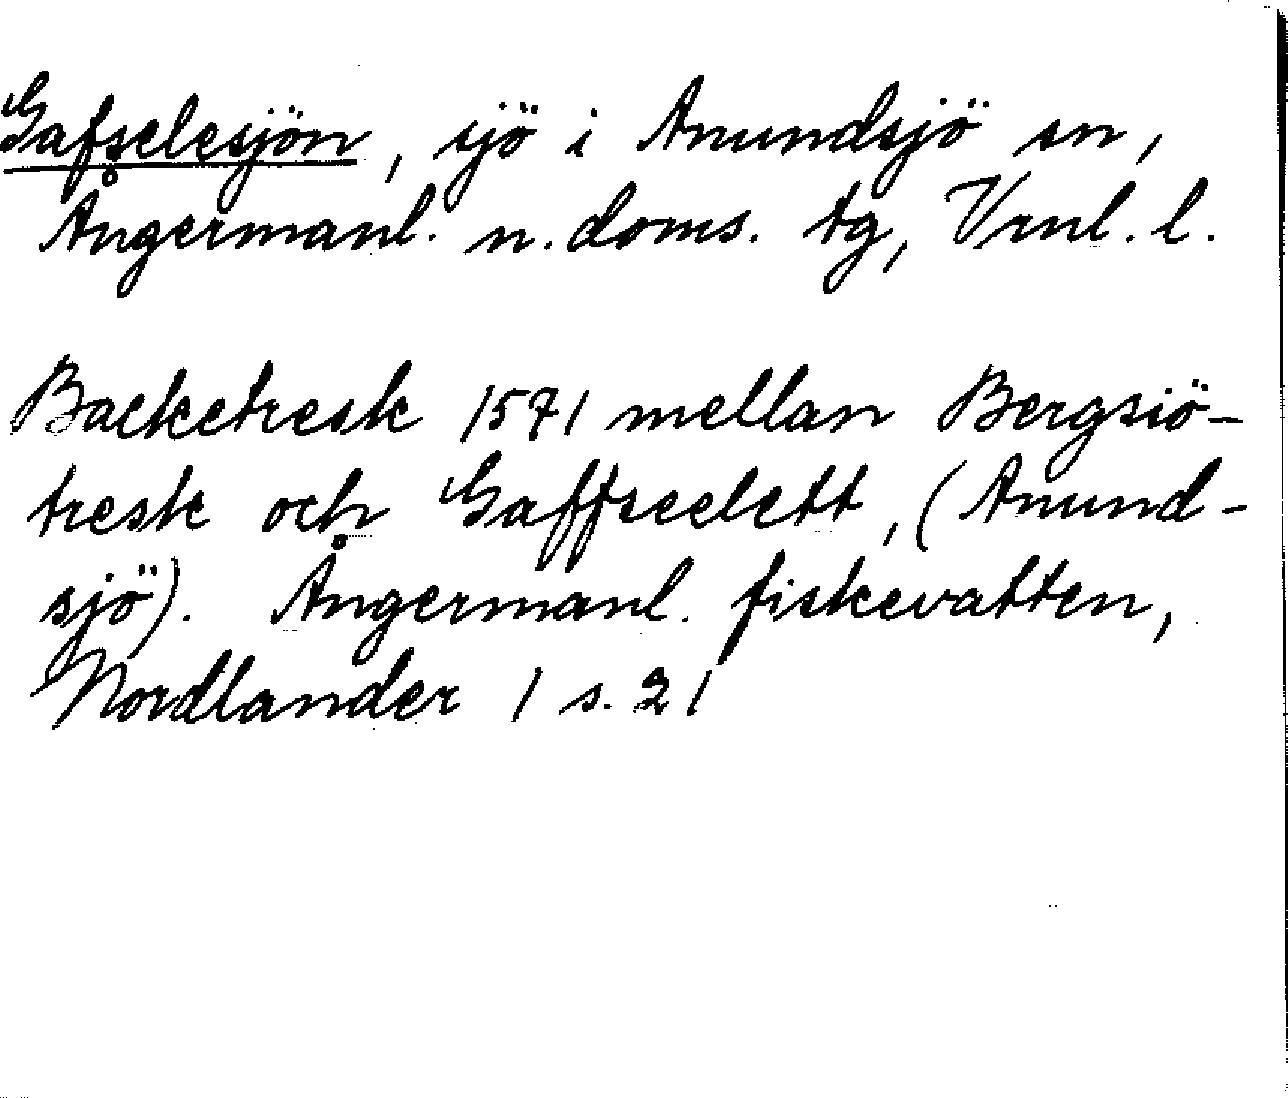 Gafselesjön, sjö i Anundsjö sn,
Ångermanl. n. doms. tg, Vrnl. l.
Backetresk 1571 mellan Bergsiö-
tresk och Gaffseelett, (Anund-
sjö). Ångermanl. fiskevatten,
Nordlander 1 s. 21